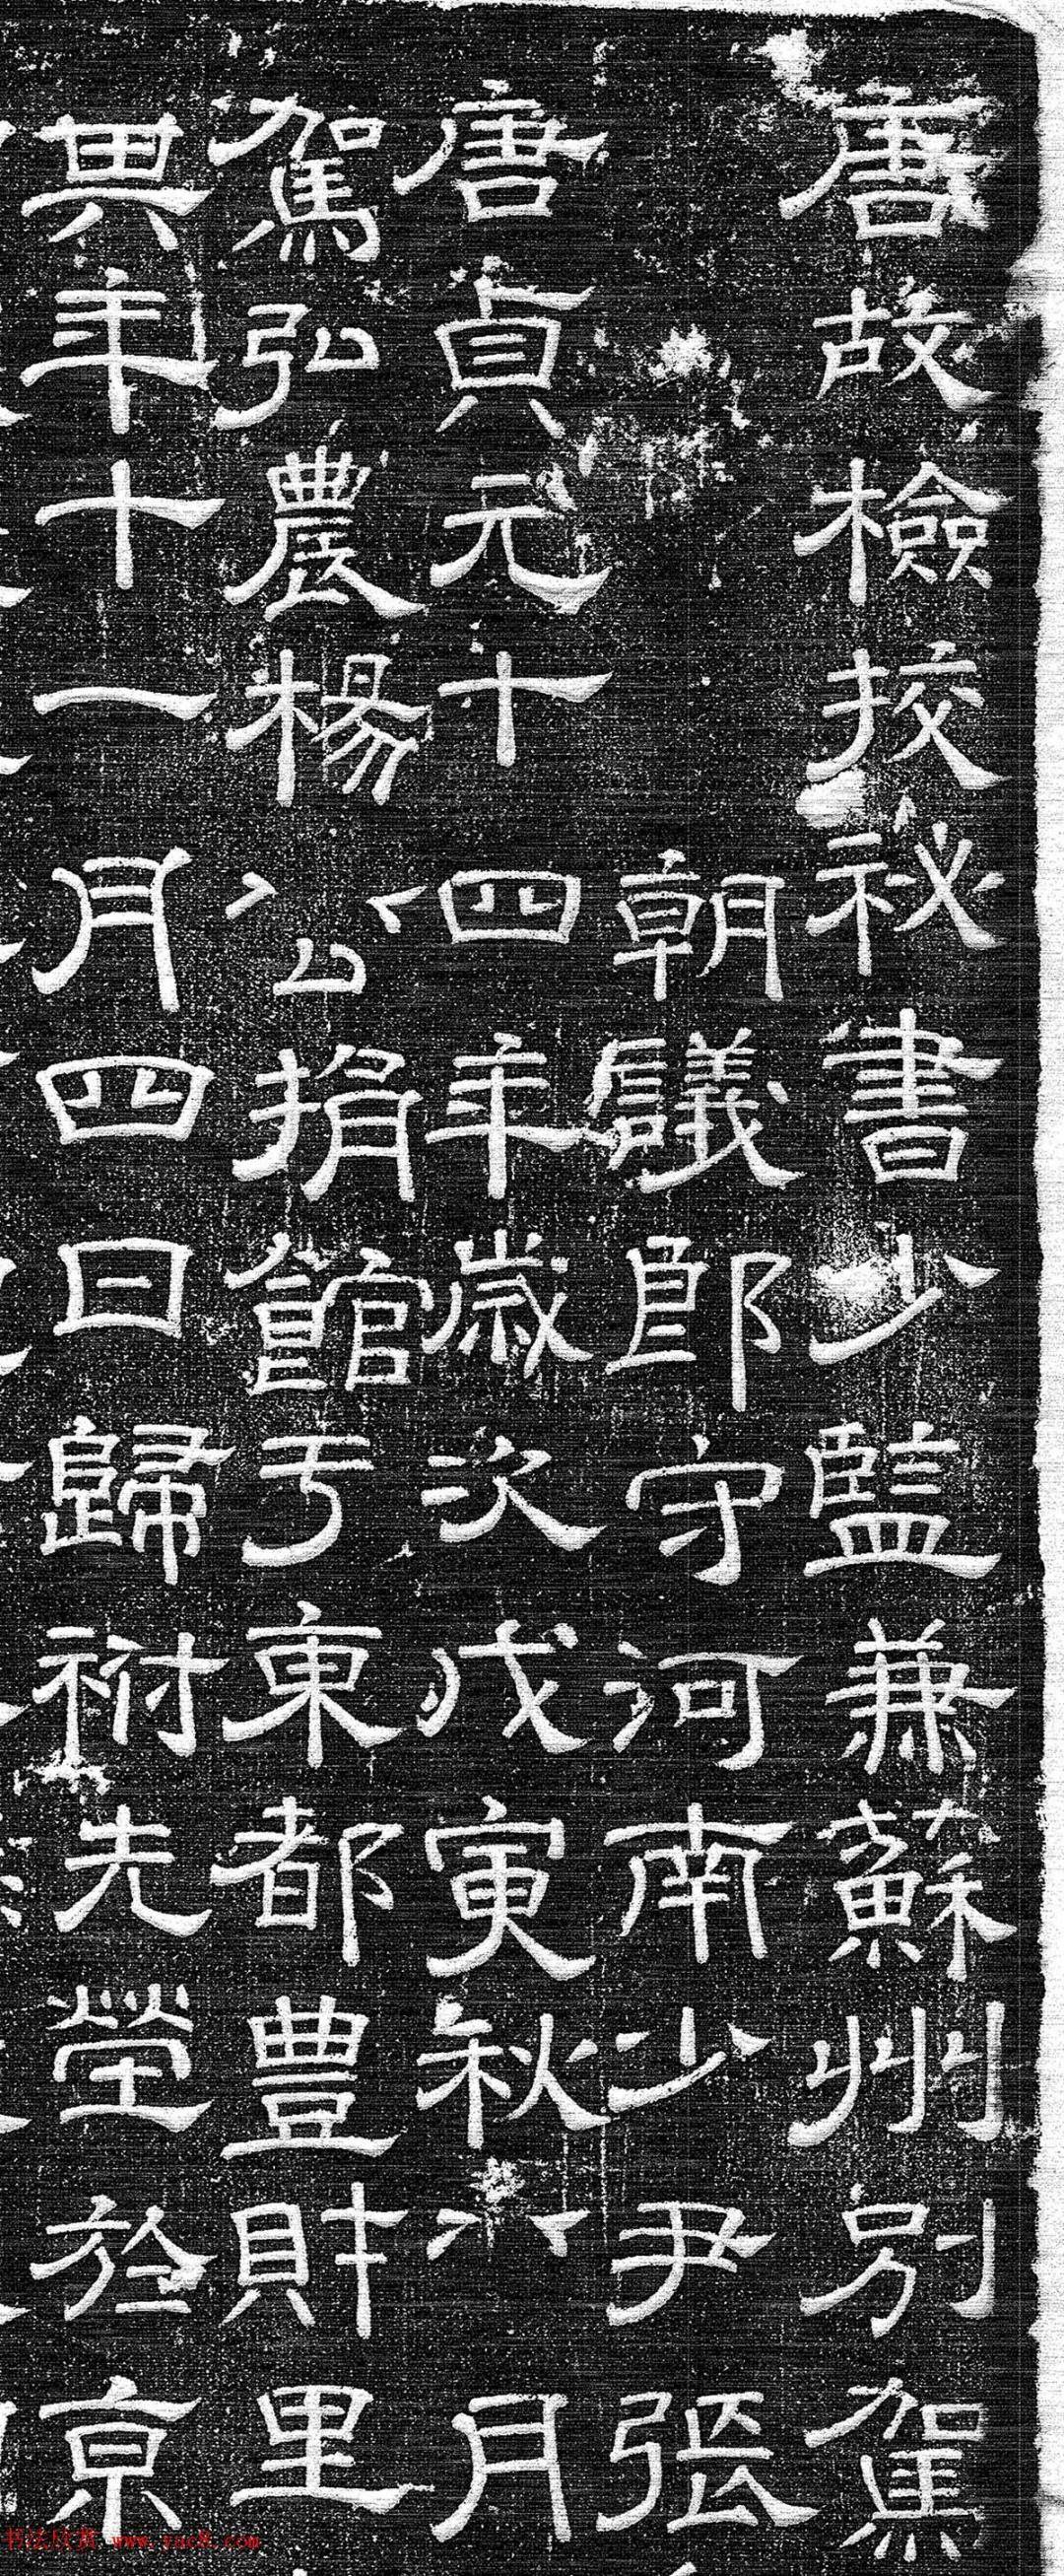 唐故檢挍秘書少監兼蘇州別駕
朝議郎守河南少尹張
唐貞元十四年歲次戊寅秋八月
駕弘農楊公捐館于東都豊財里
其年十一月四日歸祔先塋於京
www.yac8.com